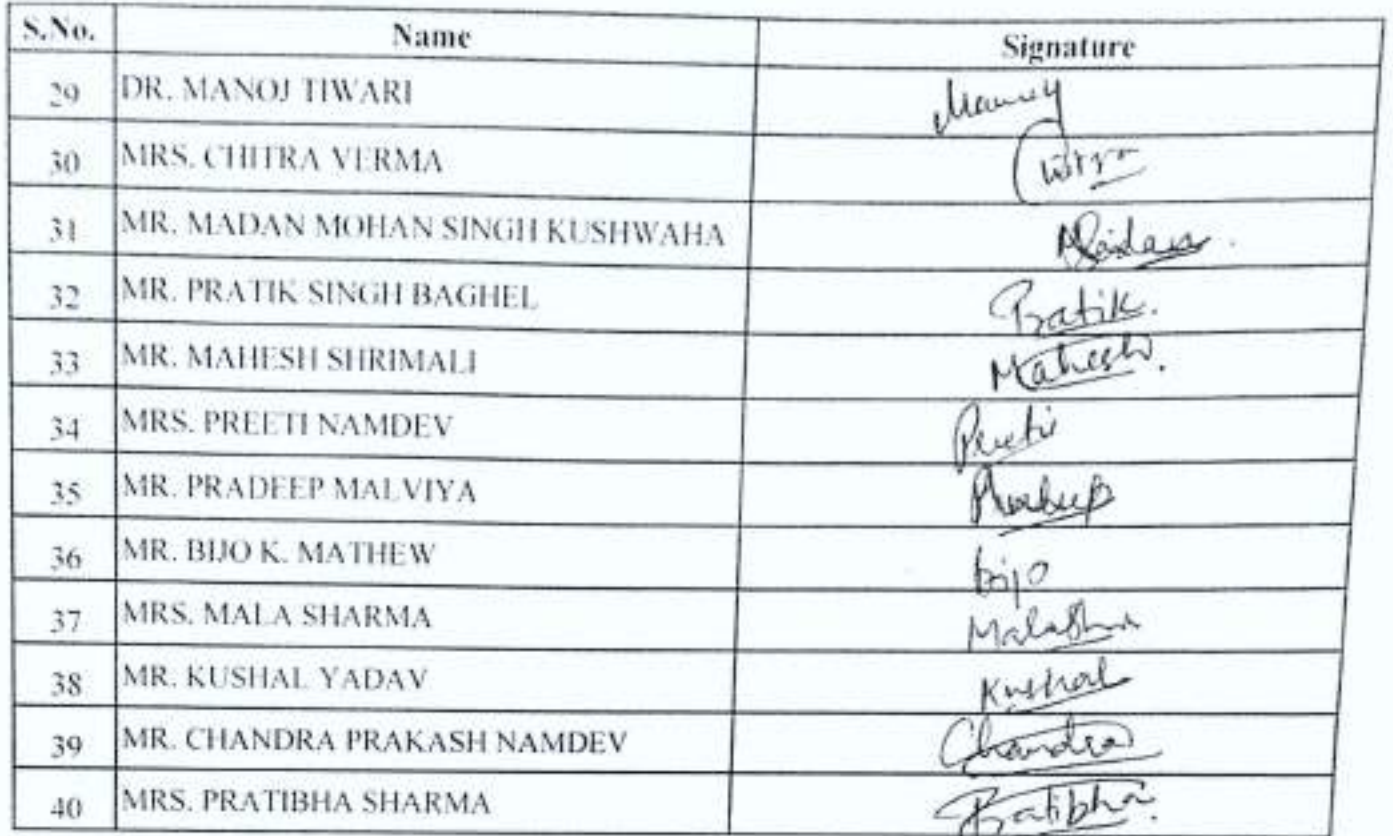 S.No. Name Signature
29 DR. MANOJ TIWARI
30 MRS. CHITRA VERMA Chitra
31 MR. MADAN MOHAN SINGH KUSHWAHA Madan
32 MR. PRATIK SINGH BAGHEL Pratik.
33 MR. MAHESH SHRIMALI Mahesh.
34 MRS. PREETI NAMDEV Preeti
35 MR. PRADEEP MALVIYA Pradeep
36 MR. BIJO K. MATHEW bijo
37 MRS. MALA SHARMA
38 MR. KUSHAL YADAV Kushal
39 MR. CHANDRA PRAKASH NAMDEV Chandra
40 MRS. PRATIBHA SHARMA Pratibha.